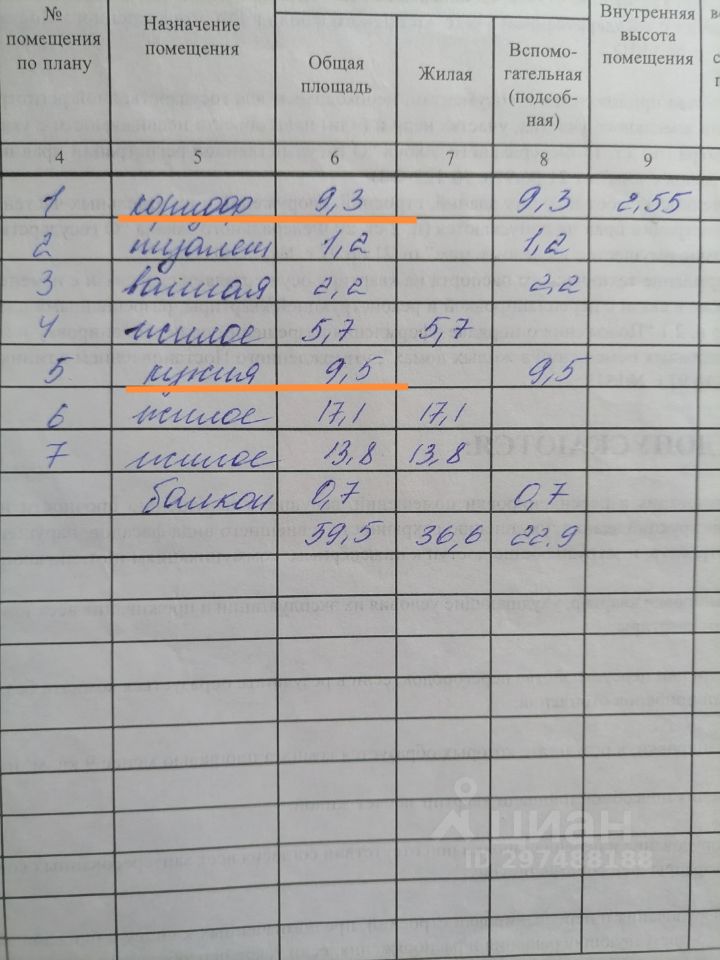 № помещения по плану | Назначение помещения | Общая площадь | Жилая | Вспомо-гательная (подсоб-ная) | Внутренняя высота помещения
4 5 6 7 8 9
1 коридор 9,3 9,3 2,55
2 туалет 1,2 1,2
3 ванная 2,2 2,2
4 жилое 5,7 5,7
5 кухня 9,5 9,5
6 жилое 17,1 17,1
7 жилое 13,8 13,8
балкон 0,7 0,7
59,5 36,6 22,9
циан
ID 297488188